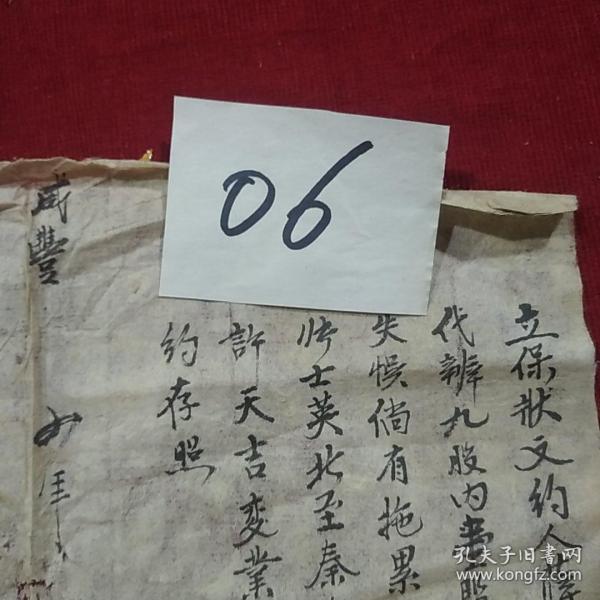 06
立保狀文約人
代辦九股內
失悞倘有拖累
士英北至秦
許天吉変業
約存照
咸豐
孔夫子旧书网
www.kongfz.com